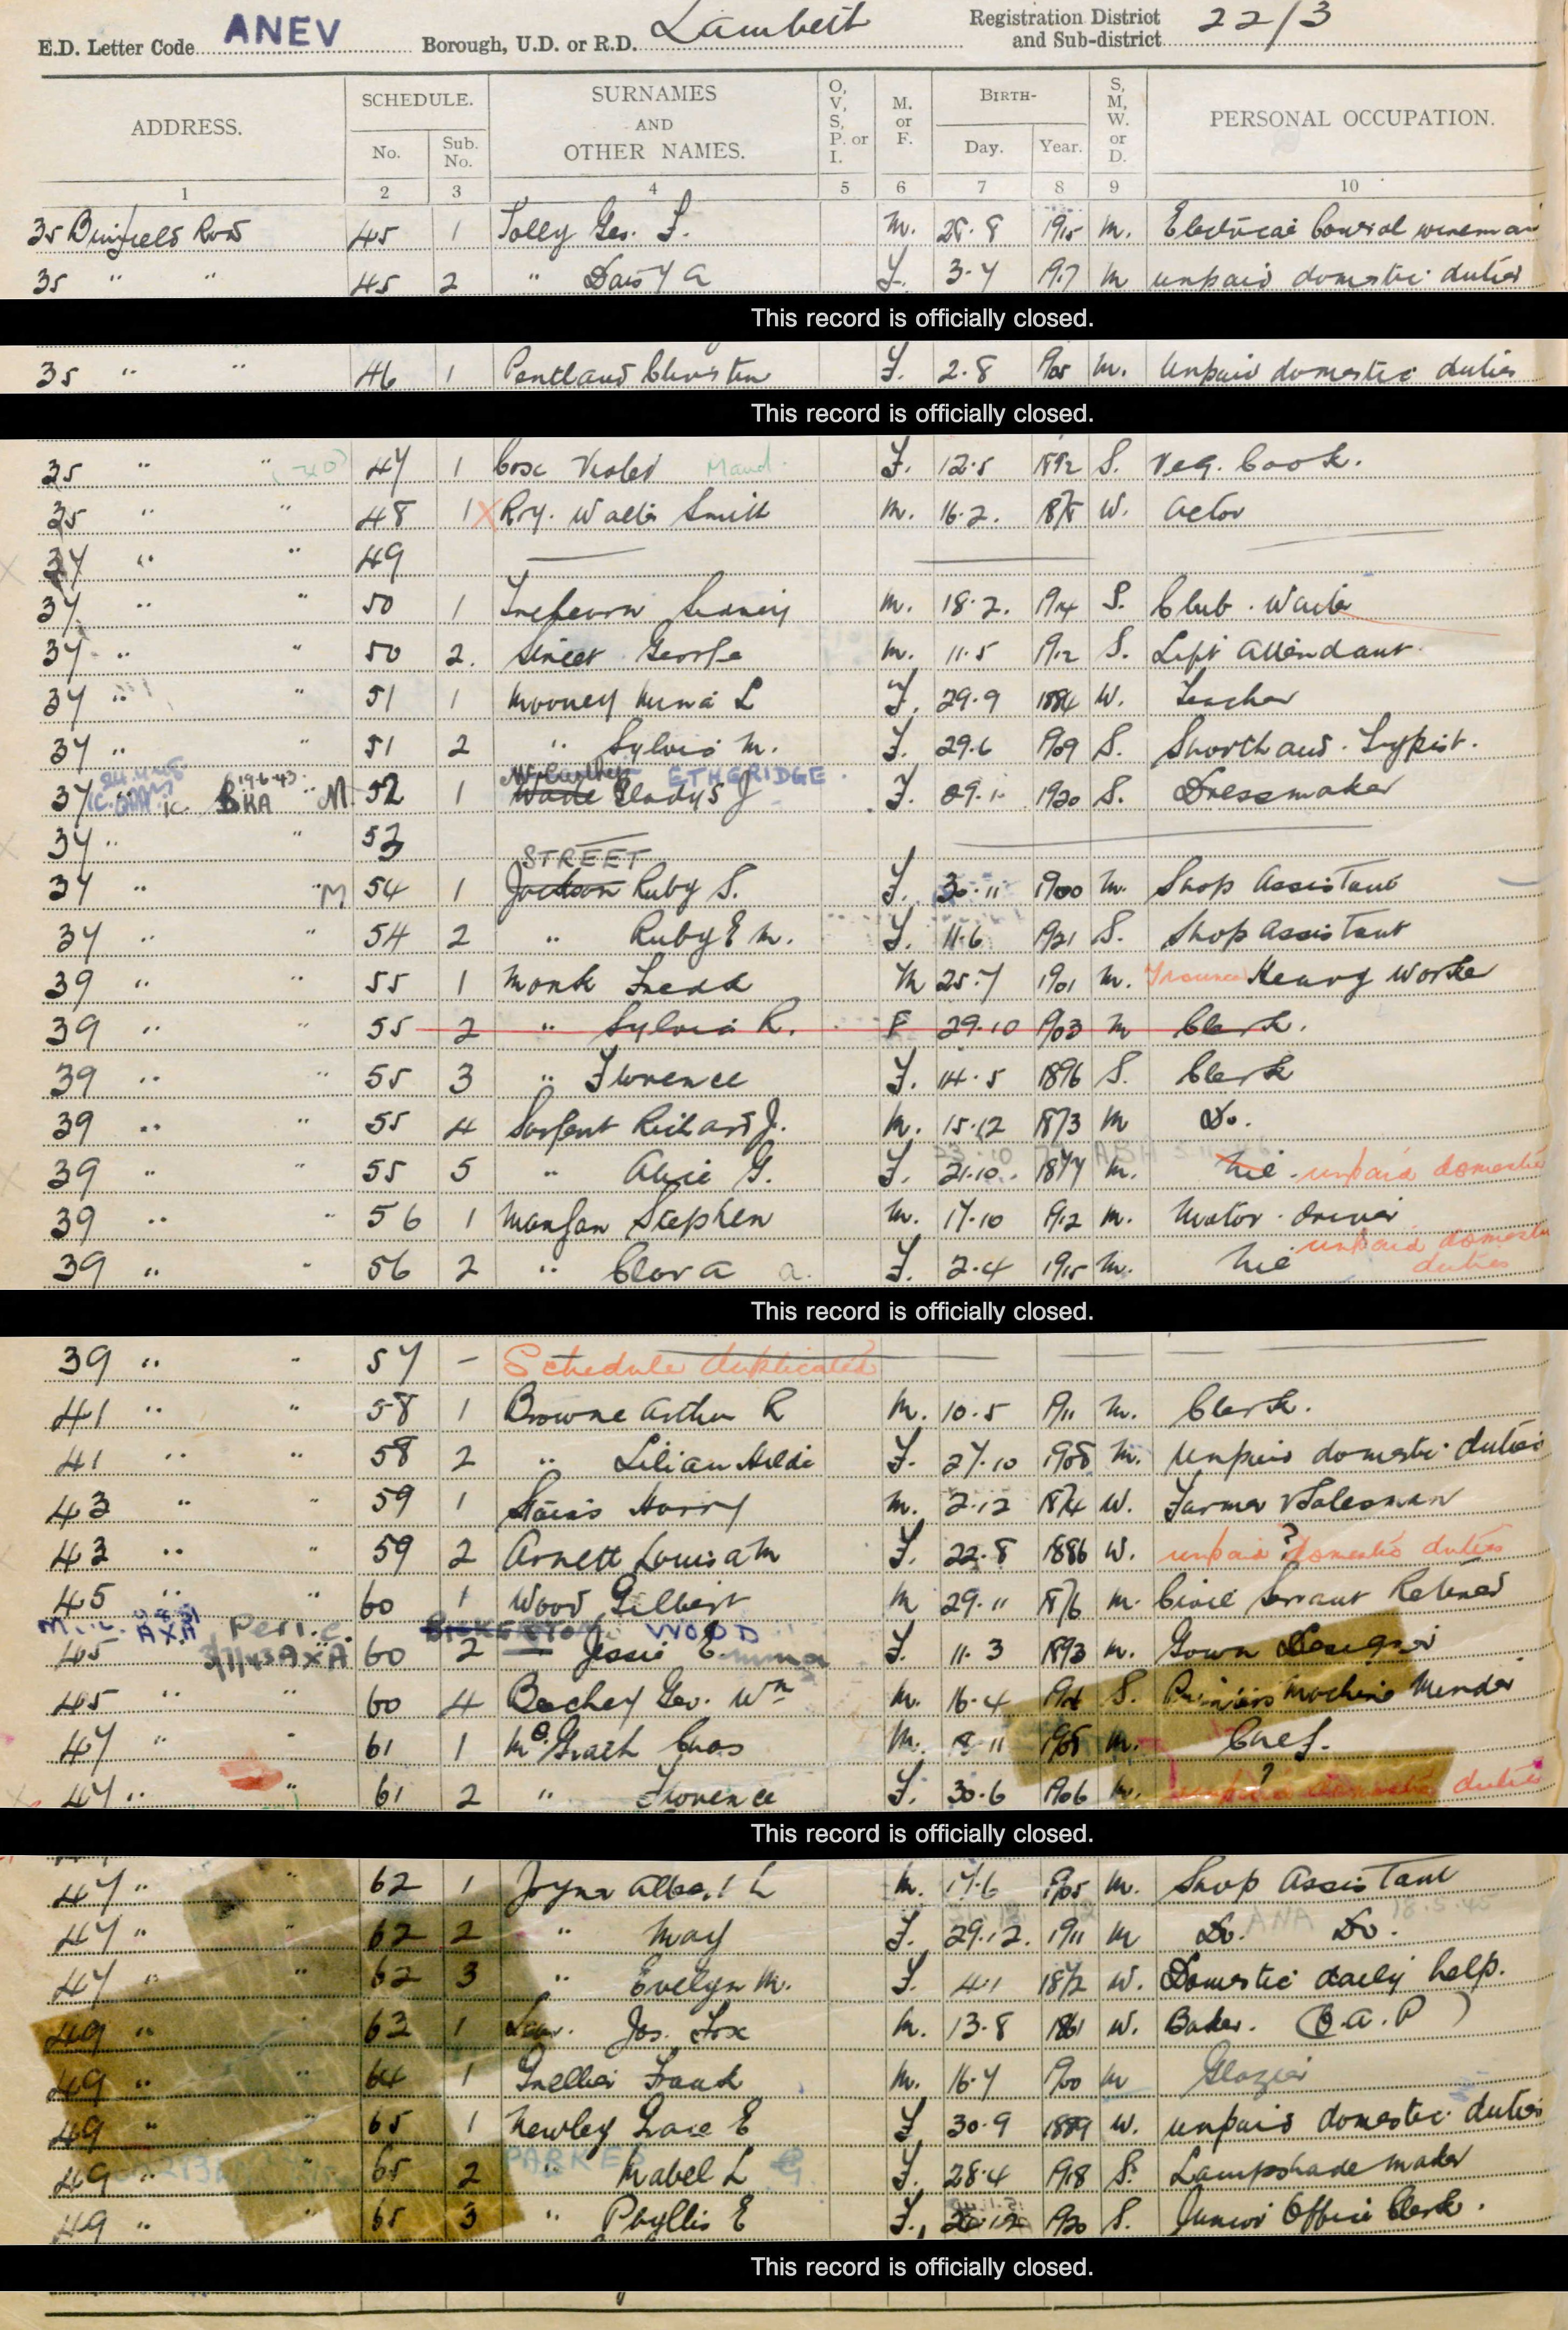 E.D. Letter Code ANEV Borough, U.D. or R.D. Lambeth Registration District and Sub-district 22/3
ADDRESS. SCHEDULE. No. Sub. No. SURNAMES AND OTHER NAMES. O, V, S, P. or I. M. or F. BIRTH- Day. Year. S, M, W. or D. PERSONAL OCCUPATION.
1 2 3 4 5 6 7 8 9 10
35 Binfield Road 45 1 Tolly Geo. F. M. 28.8 1915 M. Electrical Control wireman
35 " " 45 2 " Daisy A F. 3.7 1917 M unpaid domestic duties
This record is officially closed.
35 " " 46 1 Pentland Christin F. 2.8 1905 M. Unpaid domestic duties
This record is officially closed.
35 " " 47 1 Cox Violet Maud. F. 12.5 1892 S. Veg. Cook.
35 " " 48 1 X Roy. Walter Smith M. 16.2. 1878 W. Actor
37 " " 49
37 " " 50 1 Sidney M. 18.2. 1914 S. Club. Waiter
37 " " 50 2. Street George M. 11.5 1912 S. Lift Attendant.
37 " " 51 1 Mooney Mina L F. 29.9 1884 W. Teacher
37 " " 51 2 " Sylvia M. F. 29.6 1909 S. Shorthand. Typist.
McCarthy ETHERIDGE.
37 19.6.43 BKA M. 52 1 Wade Gladys J F. 09.1. 1920 S. Dressmaker
37 " " 53
STREET
37 " " M 54 1 Jackson Ruby S. F. 30.11 1900 M. Shop Assistant
37 " " 54 2 " Ruby E M. F. 11.6 1921 S. Shop Assistant
39 " " 55 1 Monk Fredk M 25.7 1901 M. Heavy Worker
39 " " 55 2 " Sylvia R. F 29.10 1903 M Clerk.
39 " " 55 3 " Florence F. 14.5 1896 S. Clerk
39 " " 55 4 Sargent Richard J. M. 15.12 1873 M Do.
39 " " 55 5 " Alice G. F. 21.10. 1877 M. Nil. unpaid domestic
39 " " 56 1 Mangan Stephen M. 17.10 1912 M. Motor. Driver
39 " " 56 2 " Clara a. F. 2.4 1915 M. Nil unpaid domestic duties
This record is officially closed.
39 " " 57 - Schedule duplicated
41 " " 58 1 Browne Arthur R M. 10.5 1911 M. Clerk.
41 " " 58 2 " Lilian Hilda F. 27.10 1908 M. Unpaid domestic duties
43 " " 59 1 Harry M. 2.12 1874 W. Farmer Salesman
43 " " 59 2 Arnett Louisa M F. 22.8 1886 W. unpaid ? domestic duties
45 " " 60 1 Wood Gilbert M 29.11 1876 M. Civil Servant Retired
AXA Peri.c. BICKERTON WOOD
45 3/11/43 AXA 60 2 Jessie Emma F. 11.3 1893 M. Gown Designer
45 " " 60 4 Beechey Geo. Wm M. 16.4 S. Printers Machine Minder
47 " " 61 1 McGrath Chas M. 18.11 1905 M. Chef.
47 " " 61 2 " Florence F. 30.6 1906 M. ? unpaid domestic duties
This record is officially closed.
47 " " 62 1 Joyner Albert L M. 17.6 1905 M. Shop Assistant
47 " " 62 2 " May F. 29.12. 1911 M Do. ANA Do. 18.5.45
47 " " 62 3 " Evelyn M. F. 4.1 1872 W. Domestic daily help.
49 " " 63 1 Jos. Fox M. 13.8 1861 W. Baker. (O.A.P)
49 " " 64 1 Grellier Frank M. 16.7 1900 M Glazier
49 " " 65 1 Newley Grace E F 30.9 1889 W. unpaid domestic duties
PARKE
49 " " 65 2 " Mabel L G. F. 28.4 1918 S. Lampshade maker
49 " " 65 3 " Phyllis E F. 20.12 1920 S. Junior Office Clerk.
This record is officially closed.